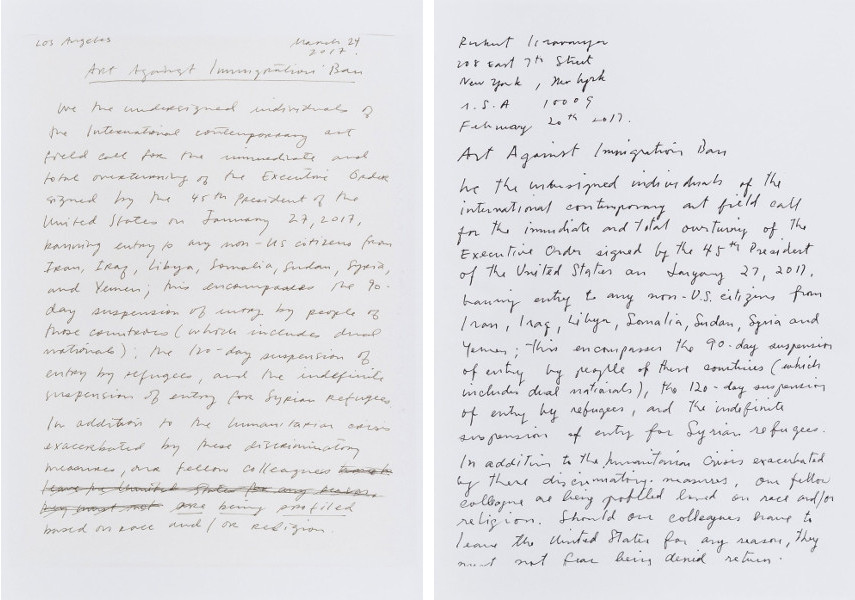 Los Angeles
March 24
2017.
Art Against Immigration Ban
We the undersigned individuals of
the International contemporary art
field call for the immediate and
total overturning of the Executive Order
signed by the 45th President of the
United States on January 27, 2017,
banning entry to any non-US citizens from
Iran, Iraq, Libya, Somalia, Sudan, Syria,
and Yemen; this encompasses the 90-
day suspension of entry by people of
those countries (which includes dual
nationals); the 120-day suspension of
entry by refugees, and the indefinite
suspension of entry for Syrian refugees.
In addition to the humanitarian crisis
exacerbated by these discriminatory
measures, our fellow colleagues
leave the United States for any reason,
they must not are being profiled
based on race and/or religion.
Rirkrit Tiravanija
208 East 7th Street
New York, New York
U.S.A 10009
February 20th 2017.
Art Against Immigration Ban
We the undersigned individuals of the
international contemporary art field call
for the immediate and total overturing of the
Executive Order signed by the 45th President
of the United States on January 27, 2017.
baning entry to any non-U.S. citizens from
Iran, Iraq, Libya, Somalia, Sudan, Syria and
Yemen; this encompasses the 90-day suspension
of entry by people of these countries (which
includes dual nationals), the 120-day suspension
of entry by refugees, and the indefinite
suspension of entry for Syrian refugees.
In addition to the humanitarian crisis exacerbated
by these discrimatory measures, our fellow
colleague are being profiled based on race and/or
religion. Should our colleagues have to
leave the United States for any reason, they
must not fear being denied return.